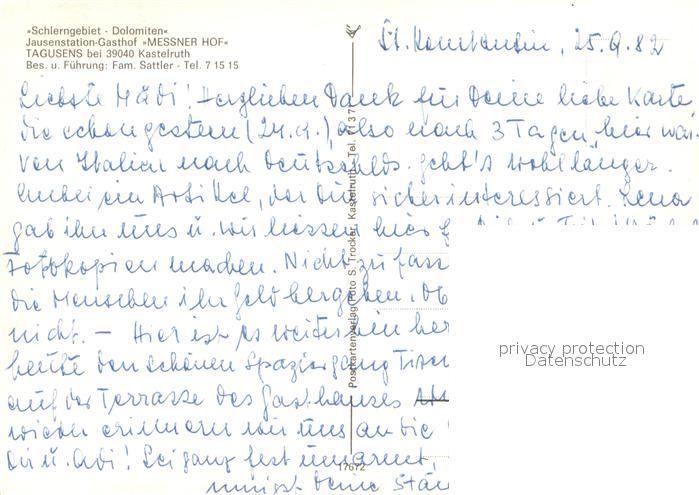 »Schlerngebiet - Dolomiten«
Jausenstation-Gasthof »MESSNER HOF«
TAGUSENS bei 39040 Kastelruth
Bes. u. Führung: Fam. Sattler - Tel. 7 15 15
St. Konstantin, 25.9.82
Liebste Mädi! Herzlichen Dank für Deine liebe Karte
die schon gestern (24.9.), also nach 3 Tagen, hier war.
von Italien nach Deutschlds. geht's wohl länger.
Anbei ein Artikel, der Dich sicher interessiert. Lena
gab ihn uns u. wir liessen hier
Fotokopien machen. Nicht zu fass
die Menschen ihr Geld hergeben. Ob
nicht. — Hier ist es weiterhin her
heute den schönen Spaziergang
auf der Terrasse des Gasthauses
wieder erinnern wir uns an die
Du u. Adi! Sei ganz fest umarmt,
innigst Deine
Postkartenverlag Foto S. Trocker, Kastelruth, Tel. 7 13 7
17672
privacy protection
Datenschutz